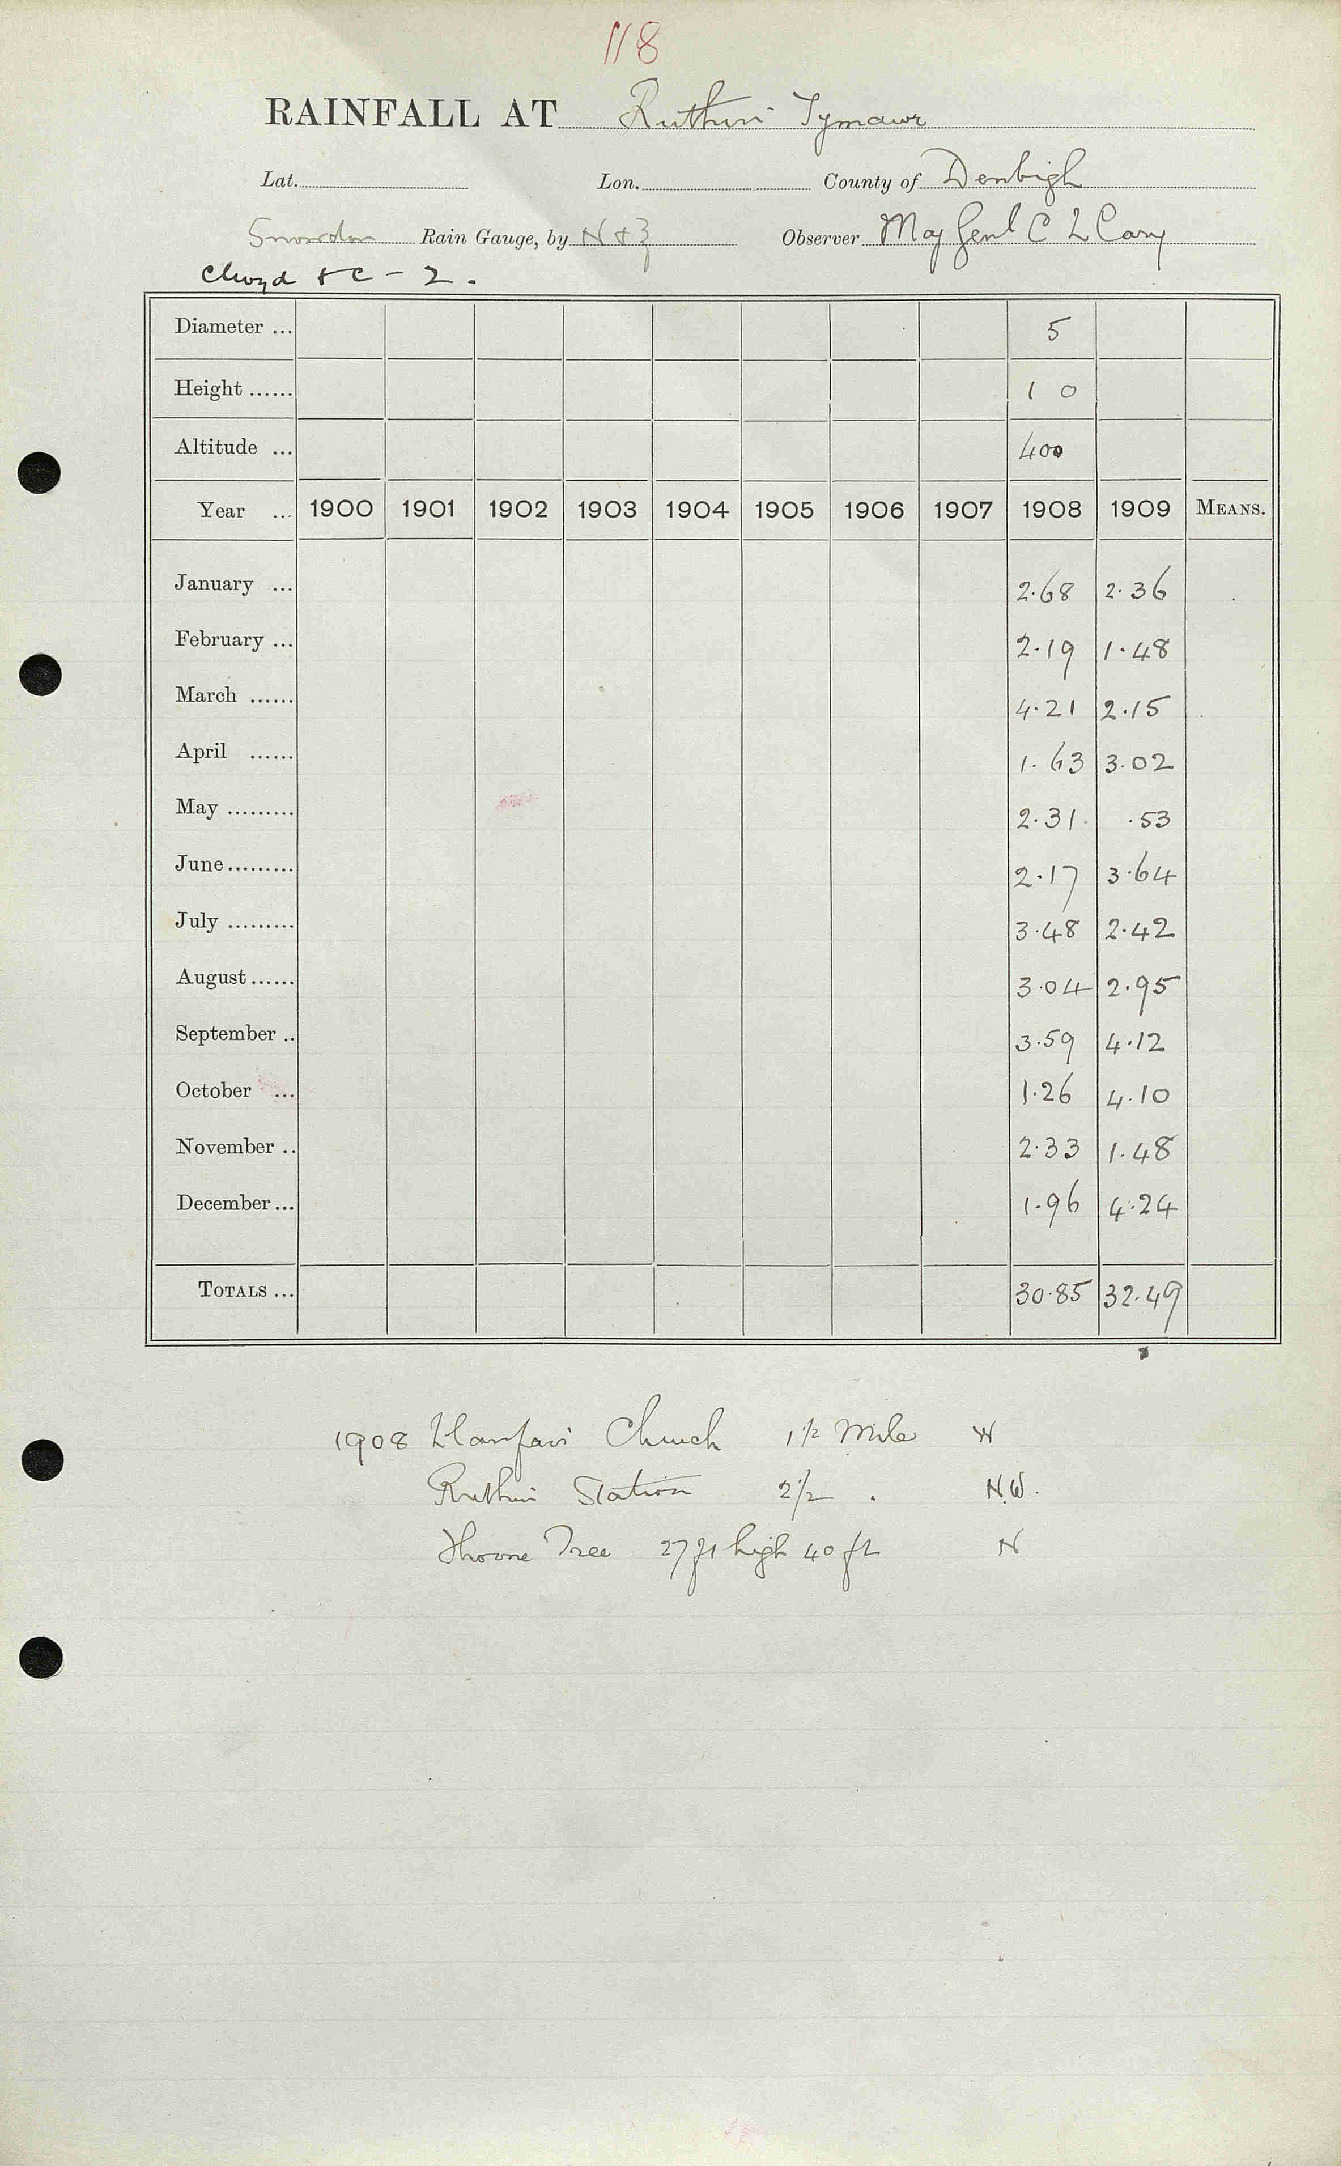 118
RAINFALL AT Ruthin Tymawr
Lat. Lon. County of Denbigh
Snowdon Rain Gauge, by N & Z Observer Maj Genl C L Cary
Clwyd & C - 2.
Diameter ... 5
Height ...... 1 0
Altitude ... 400
Year ... 1900 1901 1902 1903 1904 1905 1906 1907 1908 1909 MEANS.
January ... 2.68 2.36
February ... 2.19 1.48
March ...... 4.21 2.15
April ...... 1.63 3.02
May ......... 2.31 .53
June ......... 2.17 3.64
July ......... 3.48 2.42
August ...... 3.04 2.95
September .. 3.59 4.12
October ... 1.26 4.10
November .. 2.33 1.48
December ... 1.96 4.24
TOTALS ... 30.85 32.49
1908 Llanfair Church 1 1/2 Mile W
Ruthin Station 2 1/2 . N.W.
Thorne Tree 27 ft high 40 ft N